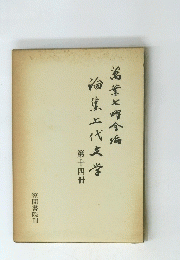 萬葉七曜会編
論集上代文学
第十四冊
笠間書院刊